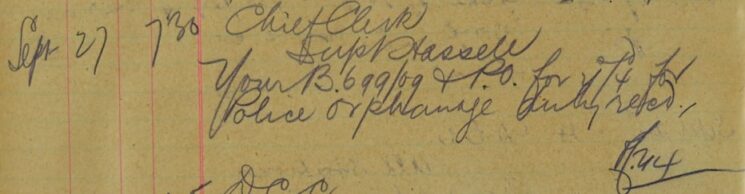 Sept 27 7.30 Chief Clerk
Supt Hassell
Your B.699/09 & P.O. for 4/4 for
Police Orphanage duly recd.,
D.C.C.